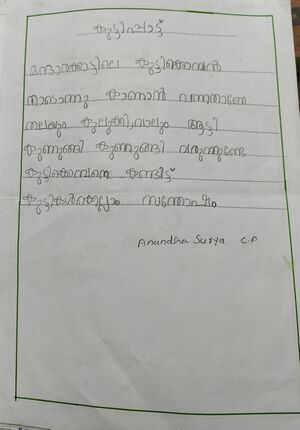 കുട്ടിപ്പാട്ട്
മന്ദാരക്കാട്ടിലെ കുട്ടിക്കൊമ്പൻ
നാടൊന്നു കാണാൻ വന്നതാണേ
തലയും കുലുക്കി,വാലും ആട്ടി
കുണുങ്ങി കുണുങ്ങി വരുന്നുണ്ടേ
കുട്ടിക്കൊമ്പനെ കണ്ടിട്ട്
കുട്ടികൾക്കെല്ലാം സന്തോഷം
Anandha Surya C.P